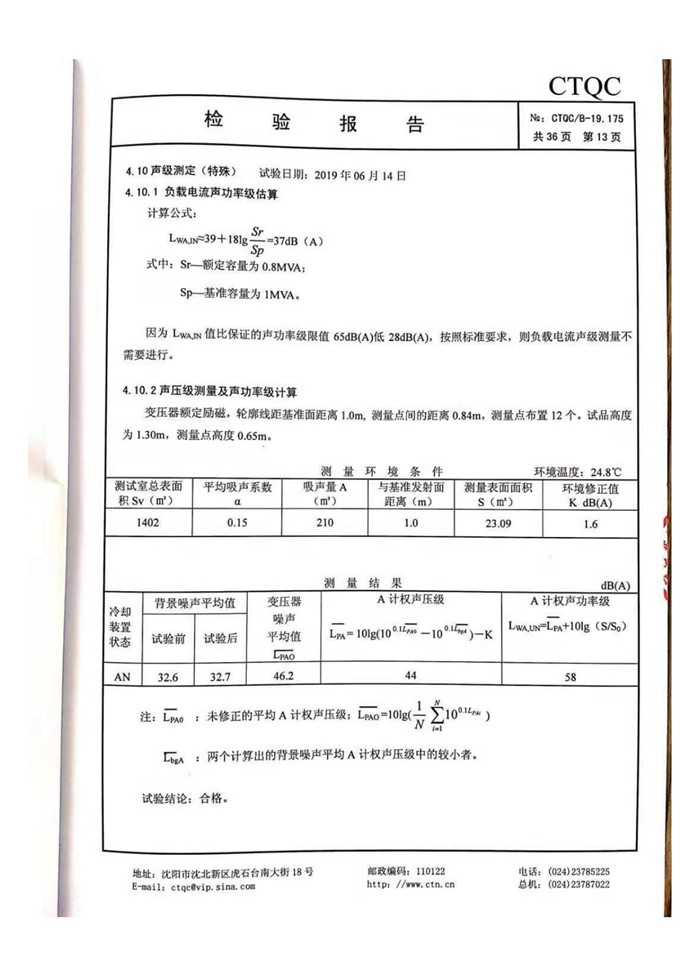 CTQC
检 验 报 告
№: CTQC/B-19.175
共 36 页 第 13 页
4.10 声级测定（特殊） 试验日期：2019 年 06 月 14 日
4.10.1 负载电流声功率级估算
计算公式：
LWA,IN≈39＋18lg Sr/Sp =37dB（A）
式中：Sr—额定容量为 0.8MVA；
Sp—基准容量为 1MVA。
因为 LWA,IN 值比保证的声功率级限值 65dB(A)低 28dB(A)，按照标准要求，则负载电流声级测量不
需要进行。
4.10.2 声压级测量及声功率级计算
变压器额定励磁，轮廓线距基准面距离 1.0m, 测量点间的距离 0.84m，测量点布置 12 个。试品高度
为 1.30m，测量点高度 0.65m。
测 量 环 境 条 件 环境温度：24.8℃
测试室总表面积 Sv（m²） 平均吸声系数 α 吸声量 A（m²） 与基准发射面距离（m） 测量表面面积 S（m²） 环境修正值 K dB(A)
1402 0.15 210 1.0 23.09 1.6
测 量 结 果 dB(A)
冷却装置状态 背景噪声平均值 试验前 试验后 变压器噪声平均值 LPAO A 计权声压级 LPA= 10lg(10^0.1LPA0 －10^0.1LbgA)－K A 计权声功率级 LWA,UN=LPA+10lg（S/S0）
AN 32.6 32.7 46.2 44 58
注：LPA0 ：未修正的平均 A 计权声压级；LPAO=10lg(1/N ∑ i=1 N 10^0.1LPAi )
LbgA ：两个计算出的背景噪声平均 A 计权声压级中的较小者。
试验结论：合格。
地址：沈阳市沈北新区虎石台南大街 18 号 邮政编码：110122 电话：(024)23785225
E-mail：ctqc@vip.sina.com http：//www.ctn.cn 总机：(024)23787022